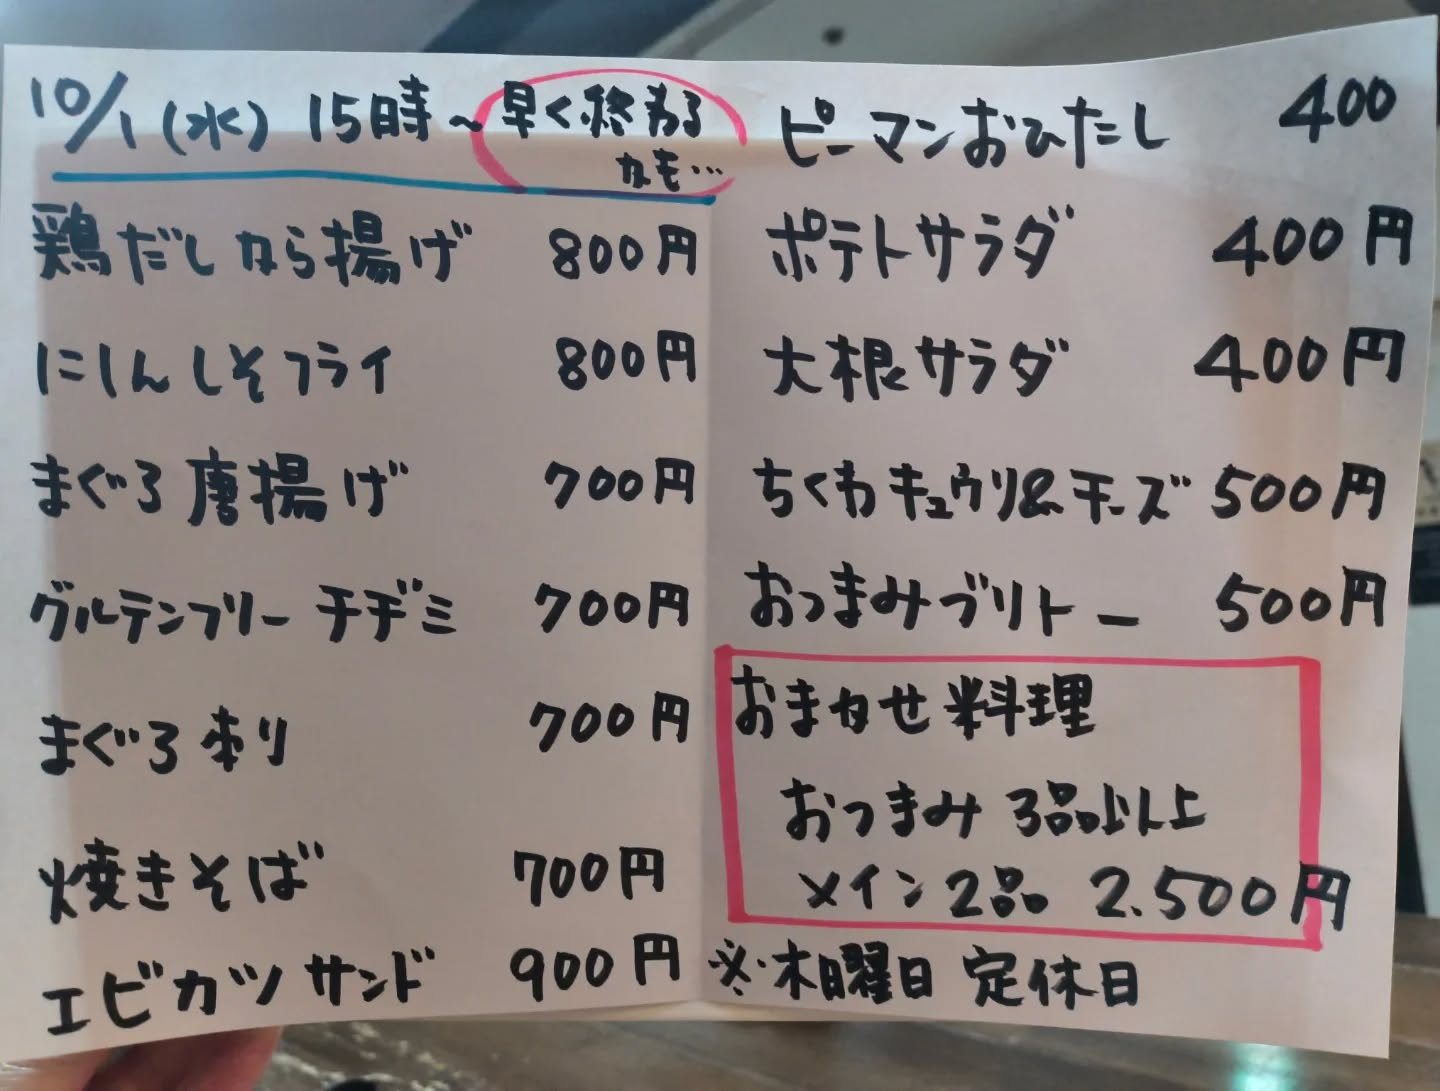 10/1(水) 15時~ 早く終わる
かも…
鶏だしから揚げ 800円
にしんしそフライ 800円
まぐろ唐揚げ 700円
グルテンフリーチヂミ 700円
まぐろ刺り 700円
焼きそば 700円
エビカツサンド 900円
ピーマンおひたし 400
ポテトサラダ 400円
大根サラダ 400円
ちくわキュウリ&チーズ 500円
おつまみブリトー 500円
おまかせ料理
おつまみ 3品以上
メイン2品 2.500円
※木曜日 定休日